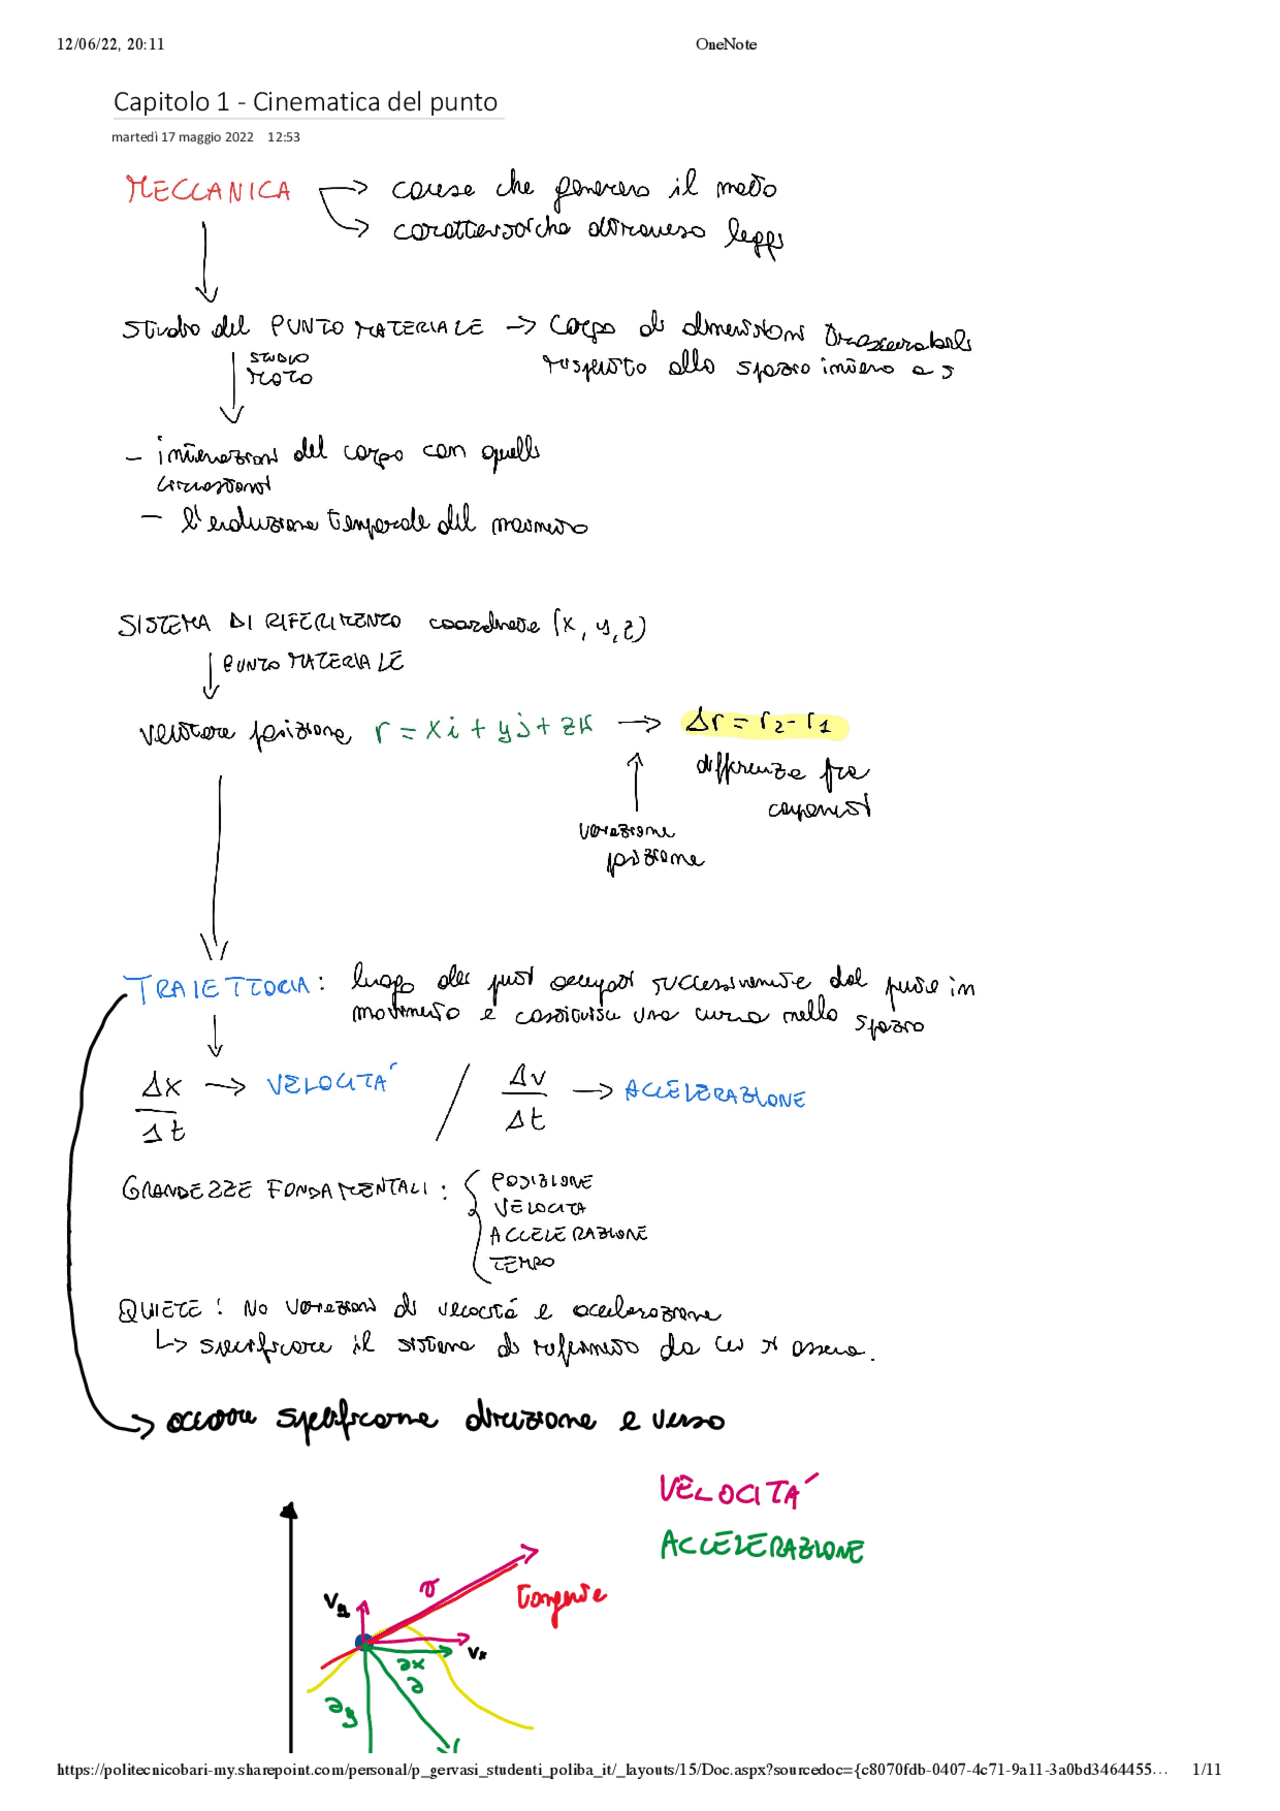 12/06/22, 20:11
OneNote
Capitolo 1 - Cinematica del punto
martedì 17 maggio 2022 12:53
MECCANICA → cause che generano il moto
→ caratteristiche attraverso leggi
Studio del PUNTO MATERIALE → Corpo di dimensioni trascurabili
STUDIO
MOTO
rispetto allo spazio intorno a sé
- interazioni del corpo con quelli
circostanti
- l'evoluzione temporale del
SISTEMA DI RIFERIMENTO coordinate (x, y, z)
↓ PUNTO MATERIALE
vettore posizione r = xi + yj + zk → Δr = r₂ - r₁
differenza fra
variazione
posizione
TRAIETTORIA: luogo dei punti occupati successivamente dal punto in
movimento e costituisce una curva nello spazio
Δx/Δt → VELOCITÀ / Δv/Δt → ACCELERAZIONE
GRANDEZZE FONDAMENTALI: { POSIZIONE
VELOCITÀ
ACCELERAZIONE
TEMPO
QUIETE: No variazioni di velocità e accelerazione
↳ specificare il sistema di riferimento da cui si osserva.
→ occorre specificarne direzione e verso
VELOCITÀ
ACCELERAZIONE
v
tangente
Vy
Vx
ax
a
ay
https://politecnicobari-my.sharepoint.com/personal/p_gervasi_studenti_poliba_it/_layouts/15/Doc.aspx?sourcedoc={c8070fdb-0407-4c71-9a11-3a0bd3464455… 1/11